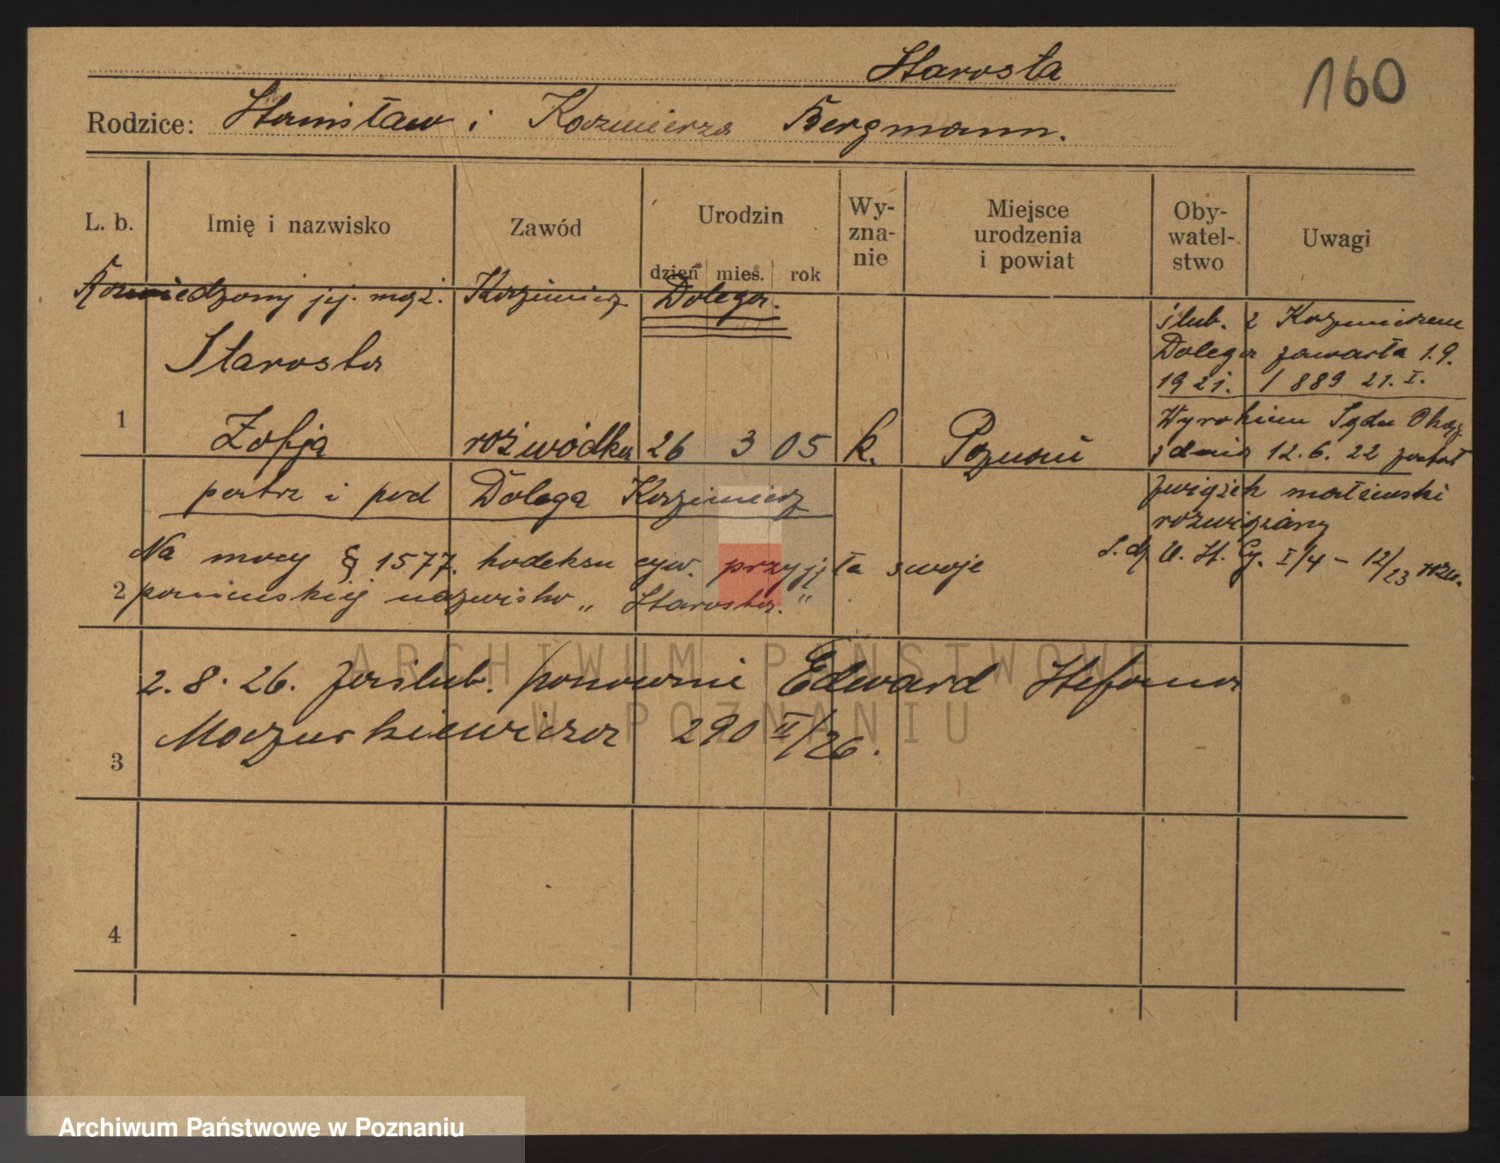 Starosta
160
Rodzice: Stanisław i Kazimiera Bergmann.
L. b.
Imię i nazwisko
Zawód
Urodzin
dzień mieś. rok
Wy-
zna-
nie
Miejsce
urodzenia
i powiat
Oby-
watel-
stwo
Uwagi
Rozwiedzony jej. mąż. Kazimierz Dolega.
Starosta
1 Zofja rozwódka 26 3 05 k. Poznań
ślub. z Kazimierzem
Dolega zawarła 1.9.
1921. / 889 21. I.
Wyrokiem Sądu Okrę
z dnia 12. 6. 22 został
związek małżeński
rozwiązany
patrz i pod Dolega Kazimierz
Na mocy § 1577. kodeksu cyw. przyjęła swoje
2 panieńskiej nazwisko „Starosta."
U. St. Cy. I/4 – 12/23
2. 8. 26. zaślub. ponownie Edward Stefana
Maczurkiewicza 290 II/26.
3
4
ARCHIWUM PAŃSTWOWE
W POZNANIU
Archiwum Państwowe w Poznaniu